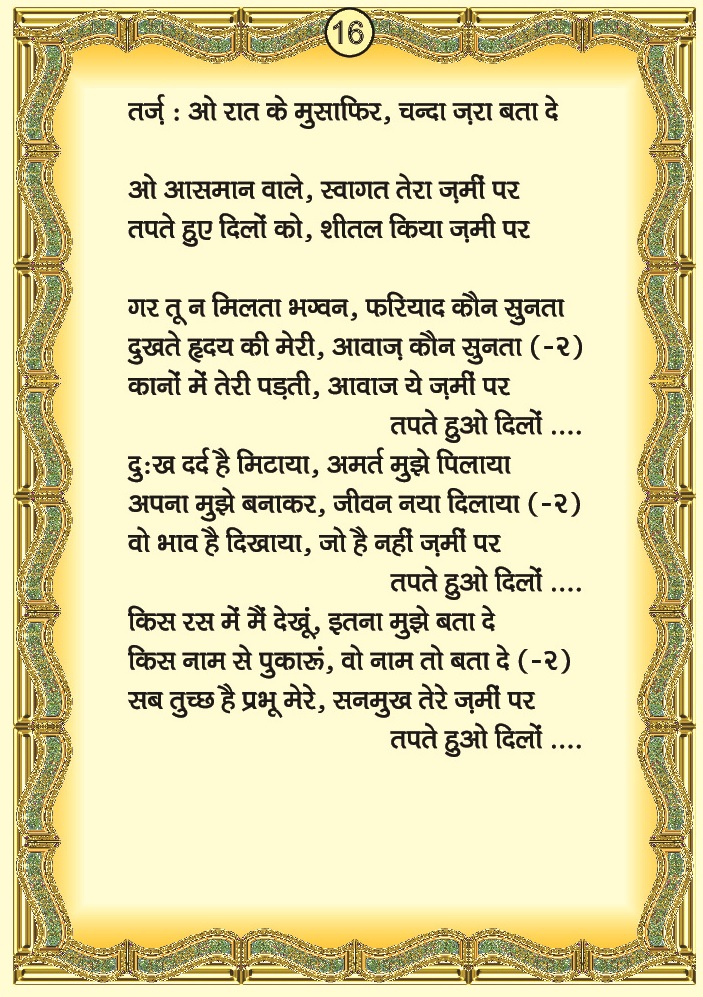 16
तर्ज़ : ओ रात के मुसाफिर, चन्दा ज़रा बता दे
ओ आसमान वाले, स्वागत तेरा ज़मीं पर
तपते हुए दिलों को, शीतल किया ज़मी पर
गर तू न मिलता भगवन, फरियाद कौन सुनता
दुखते हृदय की मेरी, आवाज़ कौन सुनता (-२)
कानों में तेरी पड़ती, आवाज ये ज़मीं पर
तपते हुओ दिलों ....
दु:ख दर्द है मिटाया, अमर्त मुझे पिलाया
अपना मुझे बनाकर, जीवन नया दिलाया (-२)
वो भाव है दिखाया, जो है नहीं ज़मीं पर
तपते हुओ दिलों ....
किस रस में मैं देखूं, इतना मुझे बता दे
किस नाम से पुकारूं, वो नाम तो बता दे (-२)
सब तुच्छ है प्रभू मेरे, सनमुख तेरे ज़मीं पर
तपते हुओ दिलों ....